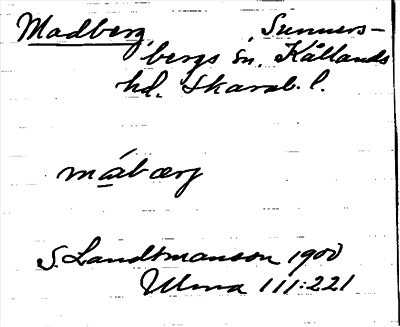 Madberg, Sunners-
bergs sn, Kållands
hd. Skarab. l.
mábærg
S. Landtmanson 1900
Ulma 111:221